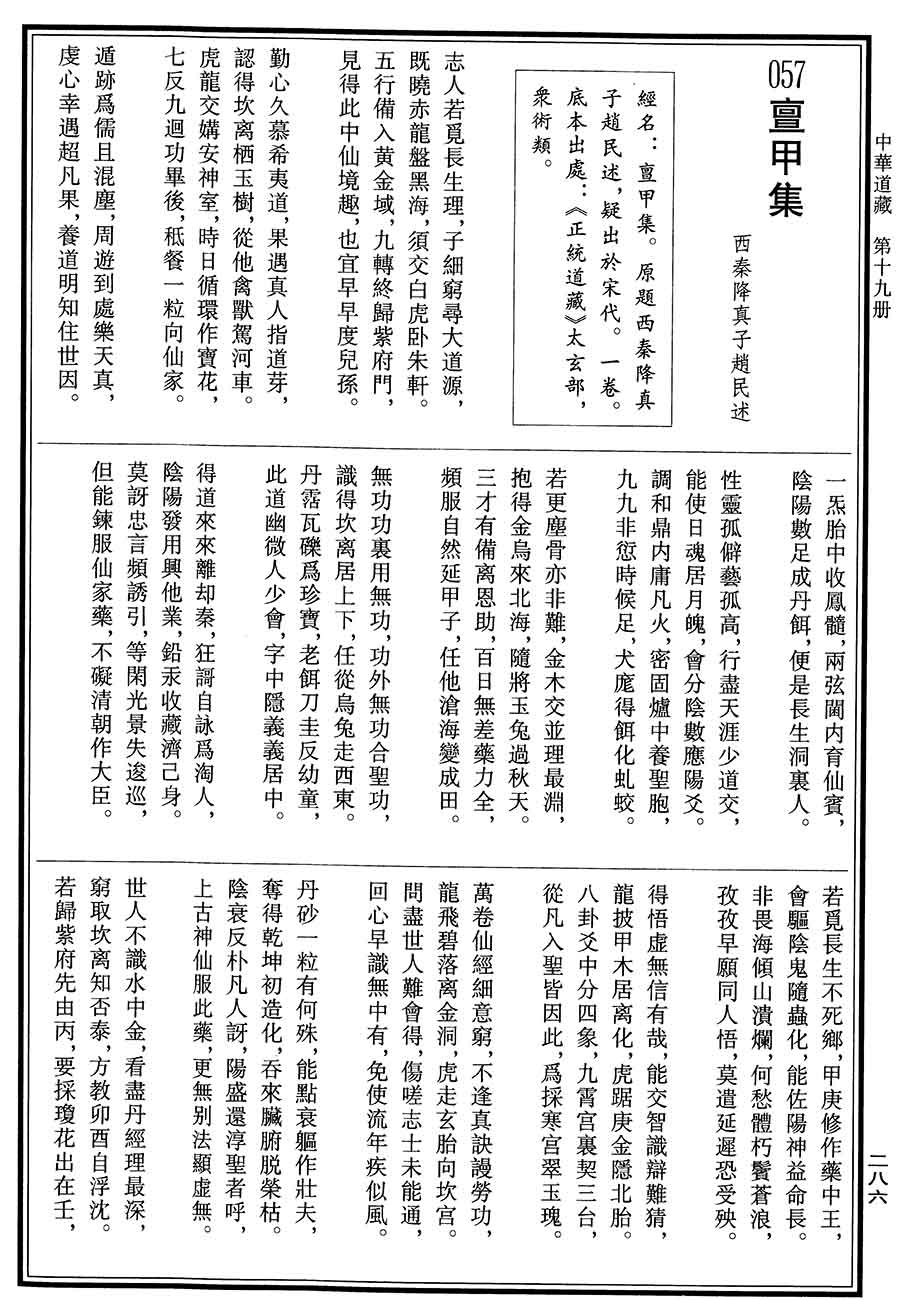 中華道藏　第十九册
057亶甲集
西秦降真子趙民述
經名：亶甲集。原題西秦降真
子趙民述，疑出於宋代。一卷。
底本出處：《正統道藏》太玄部，
衆術類。
志人若覓長生理，子細窮尋大道源，
既曉赤龍盤黑海，須交白虎卧朱軒。
五行備入黄金域，九轉終歸紫府門，
見得此中仙境趣，也宜早早度兒孫。
勤心久慕希夷道，果遇真人指道芽，
認得坎离栖玉樹，從他禽獸駕河車。
虎龍交媾安神室，時日循環作寶花，
七反九迴功畢後，秖餐一粒向仙家。
遁跡爲儒且混塵，周遊到處樂天真，
虔心幸遇超凡果，養道明知住世因。
一炁胎中收鳳髓，兩弦闈内育仙賓，
陰陽數足成丹餌，便是長生洞裏人。
性靈孤僻藝孤高，行盡天涯少道交，
能使日魂居月魄，會分陰數應陽爻。
調和鼎内庸凡火，密固爐中養聖胞，
九九非愆時候足，犬庬得餌化虬蛟。
若更塵骨亦非難，金木交並理最淵，
抱得金烏來北海，隨將玉兔過秋天。
三才有備离恩助，百日無差藥力全，
頻服自然延甲子，任他滄海變成田。
無功功裏用無功，功外無功合聖功，
識得坎离居上下，任從烏兔走西東。
丹霑瓦礫爲珍寶，老餌刀圭反幼童，
此道幽微人少會，字中隱義義居中。
得道來來離却秦，狂謌自詠爲淘人，
陰陽發用興他業，鉛汞收藏濟己身。
莫訝忠言頻誘引，等閑光景失逡巡，
但能鍊服仙家藥，不礙清朝作大臣。
若覓長生不死鄉，甲庚修作藥中王，
會驅陰鬼隨蟲化，能佐陽神益命長。
非畏海傾山潰爛，何愁體朽鬢蒼浪，
孜孜早願同人悟，莫遣延遲恐受殃。
得悟虚無信有哉，能交智識辯難猜，
龍披甲木居离化，虎踞庚金隱北胎。
八卦爻中分四象，九霄宫裏契三台，
從凡入聖皆因此，爲採寒宫翠玉瑰。
萬卷仙經細意窮，不逢真訣謾勞功，
龍飛碧落离金洞，虎走玄胎向坎宫。
問盡世人難會得，傷嗟志士未能通，
回心早識無中有，免使流年疾似風。
丹砂一粒有何殊，能點衰軀作壯夫，
奪得乾坤初造化，吞來臟腑脱榮枯。
陰衰反朴凡人訝，陽盛還淳聖者呼，
上古神仙服此藥，更無别法顯虚無。
世人不識水中金，看盡丹經理最深，
窮取坎离知否泰，方教卯酉自浮沈。
若歸紫府先由丙，要採瓊花出在壬，
二八六